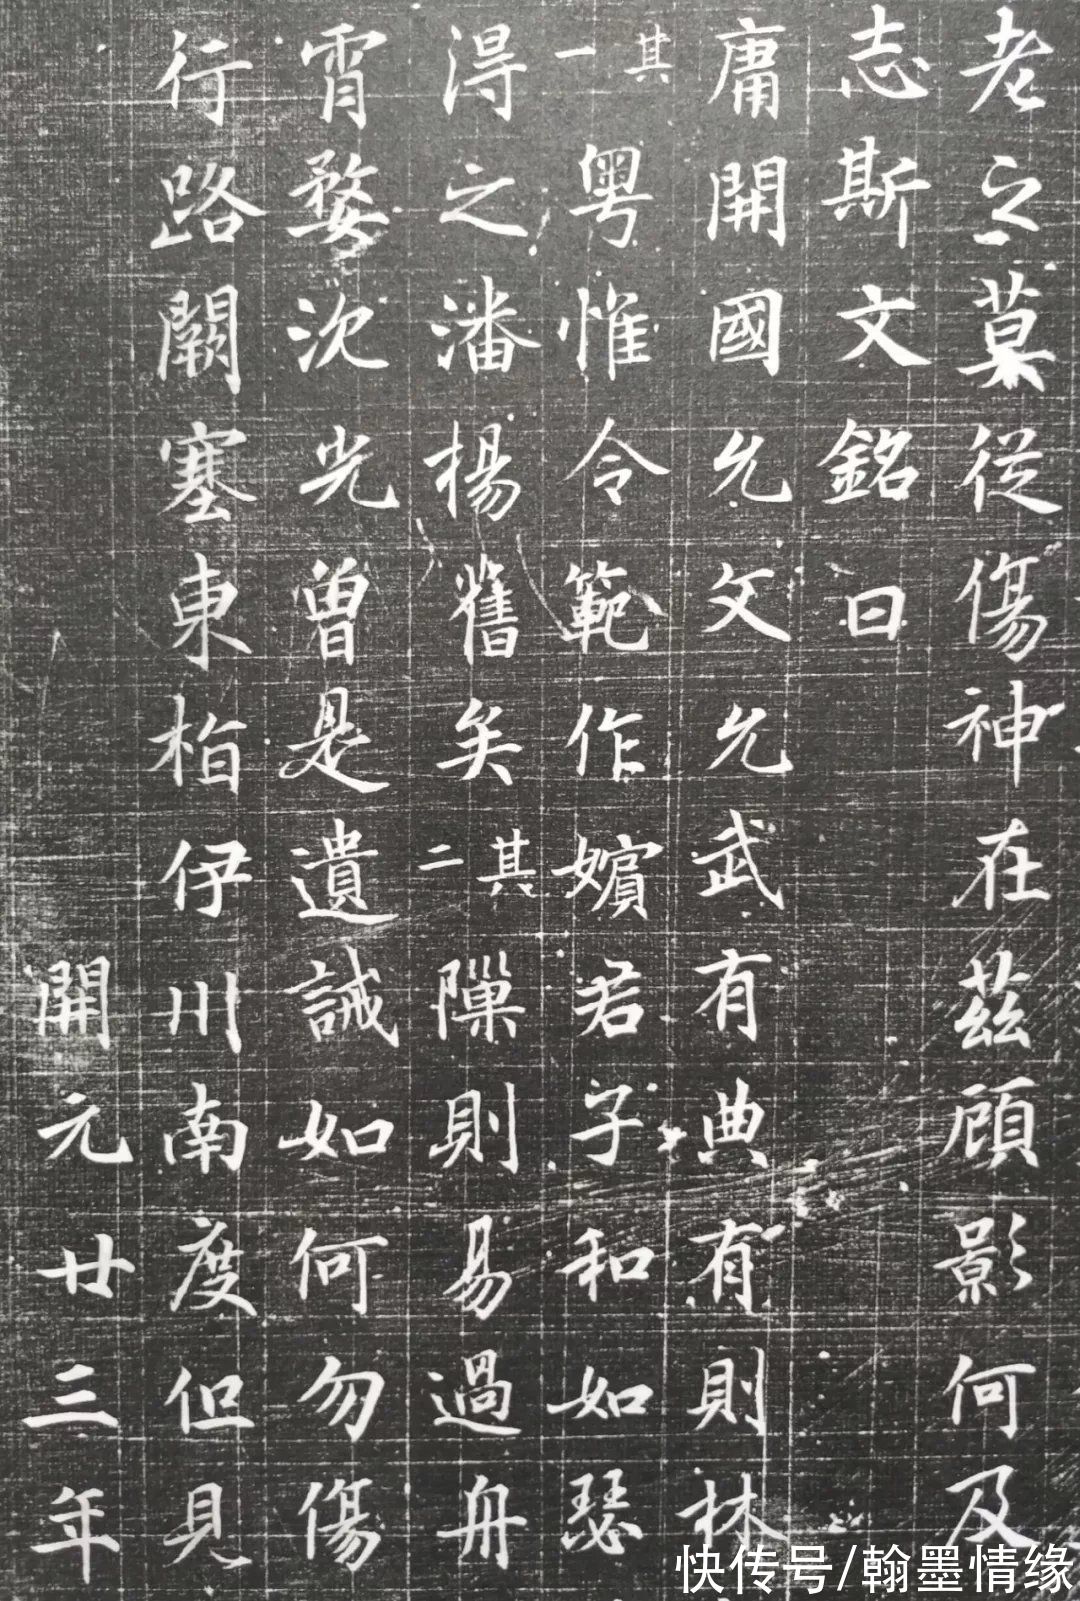 老之莫從傷神在茲顧影何及
志斯文銘曰
庸開國允文允武有典有則林
其一粵惟令範作嬪君子和如瑟
淂之潘楊舊矣其二隟則易過舟
霄婺次光曾是遺誡如何勿傷
行路闕塞東栢伊川南度但見
開元廿三年
快传号/翰墨情缘